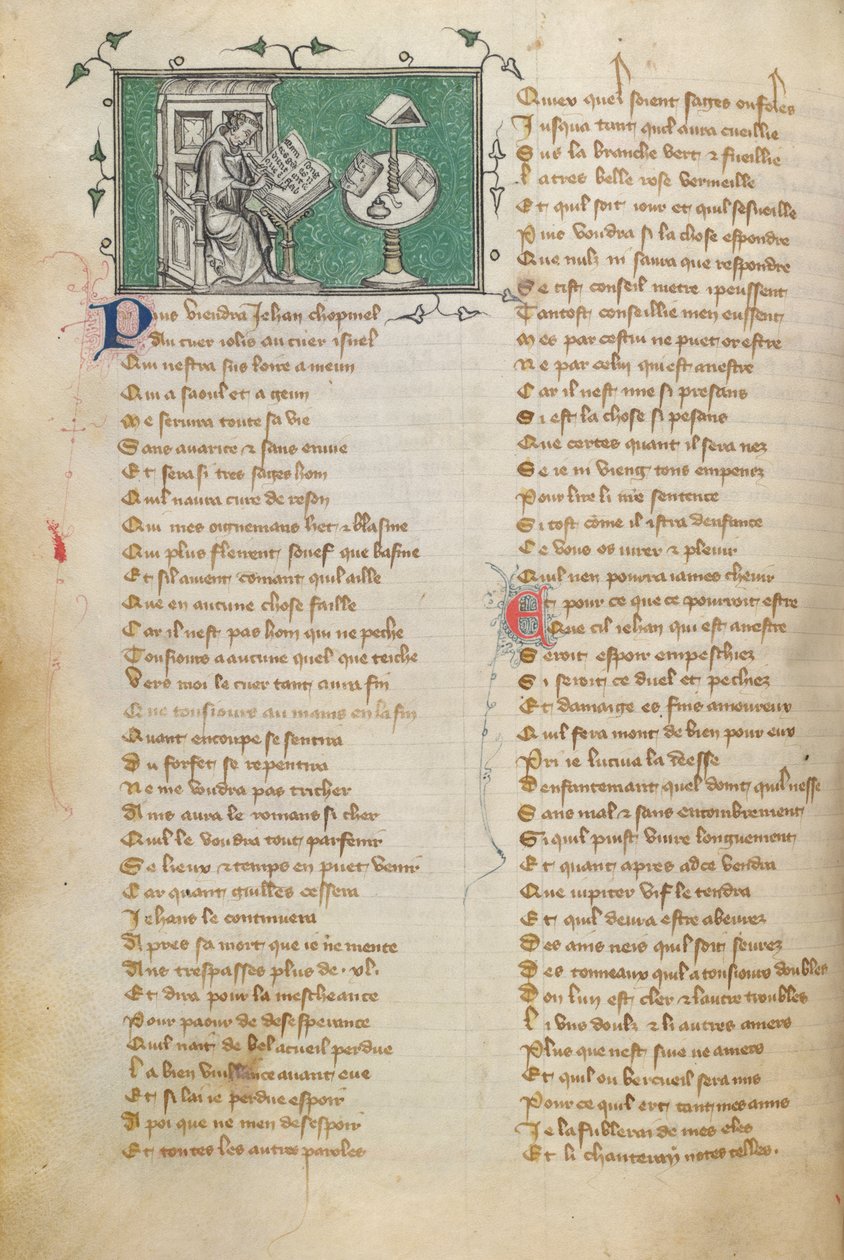 Puis viendra Jehan chopinel
Au cuer iolis au cuer isnel
Qui nestra sus loire a meun
Qui a saoul et a geun
Me seruira toute sa vie
Sans auarice & sans enuie
Et sera si tres sages hom
Quil naura cure de reson
Qui mes oignemans het & blasme
Qui plus flerrent souef que basme
Et sil auient comant quil aille
Que en aucune chose faille
Car il nest pas hom qui ne peche
Tousiours a aucune quel que teiche
Vers moi le cuer tant aura fin
Que tousiours au mains en la fin
Quant encoupe se sentira
Du forfet se repentira
Ne me voudra pas tricher
Ains aura le romans si cher
Quil le voudra tout parfenir
Se lieux & temps en puet venir
Car quant guill'es cessera
Jehans le continuera
Apres sa mort que ie ne mente
Ans trespasses plus de .xl.
Et dira pour la mescheance
Pour paour de desesperance
Quil nait de bel acueil perdue
La bien vuillance auant eue
Et si lai ie perdue espoir
A poi que ne men desespoir
Et toutes les autres paroles
Quiex quel soient sages ou foles
Jusqua tant quil aura cueillie
Sus la branche vert & fueillie
La tres belle rose vermeille
Et quil soit iour et quil sesueille
Puis voudra si la chose espondre
Que nulz ni saura que respondre
Se cist conseil metre i peussent
Tantost conseillie men eussent
Mes par cestui ne puet or estre
Ne par celui qui est a nestre
Car il nest mie si presans
Si est la chose si pesans
Que certes quant il sera nez
Se ie ni vieng tous empenez
Pour lire li vre sentence
Si tost come il istra denfance
Ce vous os iurer & pleuir
Quil nen pourra iames cheuir
Et pour ce que ce pourroit estre
Que cil iehan qui est a nestre
Seroit espoir empeschiez
Si seroit ce duel et pechiez
Et damaige es fins amoureux
Quil fera mont de bien pour eux
Pri ie lucina la deesse
Denfantemant quel doint quil nesse
Sans mal & sans encombrement
Si quil puist viure longuement
Et quant apres ad ce vendra
Que iupiter vif le tendra
Et quil deura estre abeurez
Des ains neis quil soit seurez
Des tonneaux quil a tousiours doubles
Don lun est cler & lautre troubles
Li vns doulz & li autres amers
Plus que nest suie ne amers
Et quil ou bercueil sera mis
Pour ce quil ert tant mes amis
Je la fublerai de mes eles
Et li chanteray notes telles.